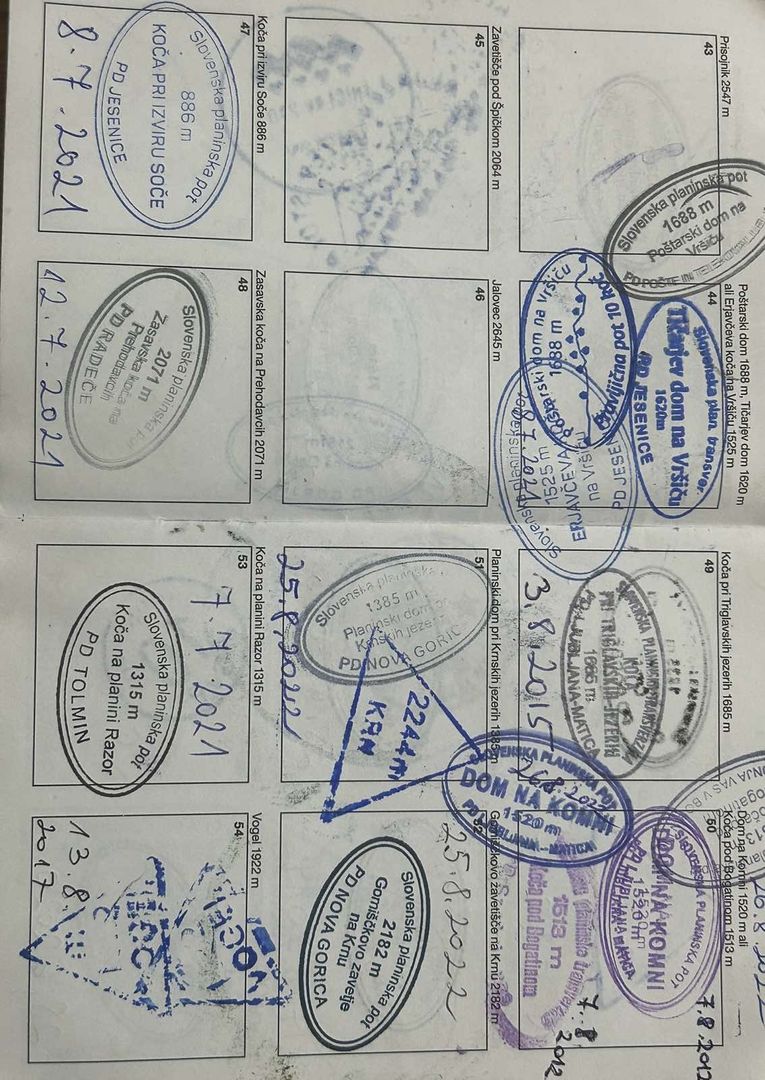 Prisojnik 2547 m
43
Poštarski dom 1688 m, Tičarjev dom 1620 m
ali Erjavčeva koča na Vršiču 1525 m
44
Slovenska planinska pot
1688 m
Poštarski dom na
Vršiču
Slovenska plan. transver.
Tičarjev dom na Vršiču
1620m
PD JESENICE
pot 10 koč
Poštarski dom na Vršiču
1688 m
Slovenska planinska
ERJAVČEVA
1525 m
na Vršiču
PD JESE
8.7.2021
Zavetišče pod Špičkom 2064 m
45
Jalovec 2645 m
46
Koča pri izviru Soče 886 m
47
Slovenska planinska pot
886 m
KOČA PRI IZVIRU SOČE
PD JESENICE
8.7.2021
Zasavska koča na Prehodavcih 2071 m
48
Slovenska planinska pot
2071 m
Zasavska koča na
Prehodavcih
PD RADEČE
12.7.2021
Koča pri Triglavskih jezerih 1685 m
49
PRI TRIGLAVSKIH JEZERIH
PD LJUBLJANA-MATICA
3.8.2015
Dom na Komni 1520 m ali
Koča pod Bogatinom 1513 m
50
SLOVENSKA PLANINSKA POT
DOM NA KOMNI
1520 m
PD LJUBLJANA MATICA
7.8.2012
SLOVENSKA PLANINSKA POT
DOM NA KOMNI
1520 m
PD LJUBLJANA-MATICA
planinska transverzala
1513 m
Koča pod Bogatinom
7.8
2012
Planinski dom pri Krnskih jezerih 1385 m
51
Slovenska planinska
1385 m
Planinski dom pr
Krnskih jezer
PD NOVA GORIC
25.8.2022
2244 m
KRN
Gomiščkovo zavetišče na Krnu 2182 m
52
25.8.2022
Slovenska planinska pot
2182 m
Gomiščkovo zavetje
na Krnu
PD NOVA GORICA
Koča na planini Razor 1315 m
53
7.7.2021
Slovenska planinska pot
1315 m
Koča na planini Razor
PD TOLMIN
Vogel 1922 m
54
13.8.
2017